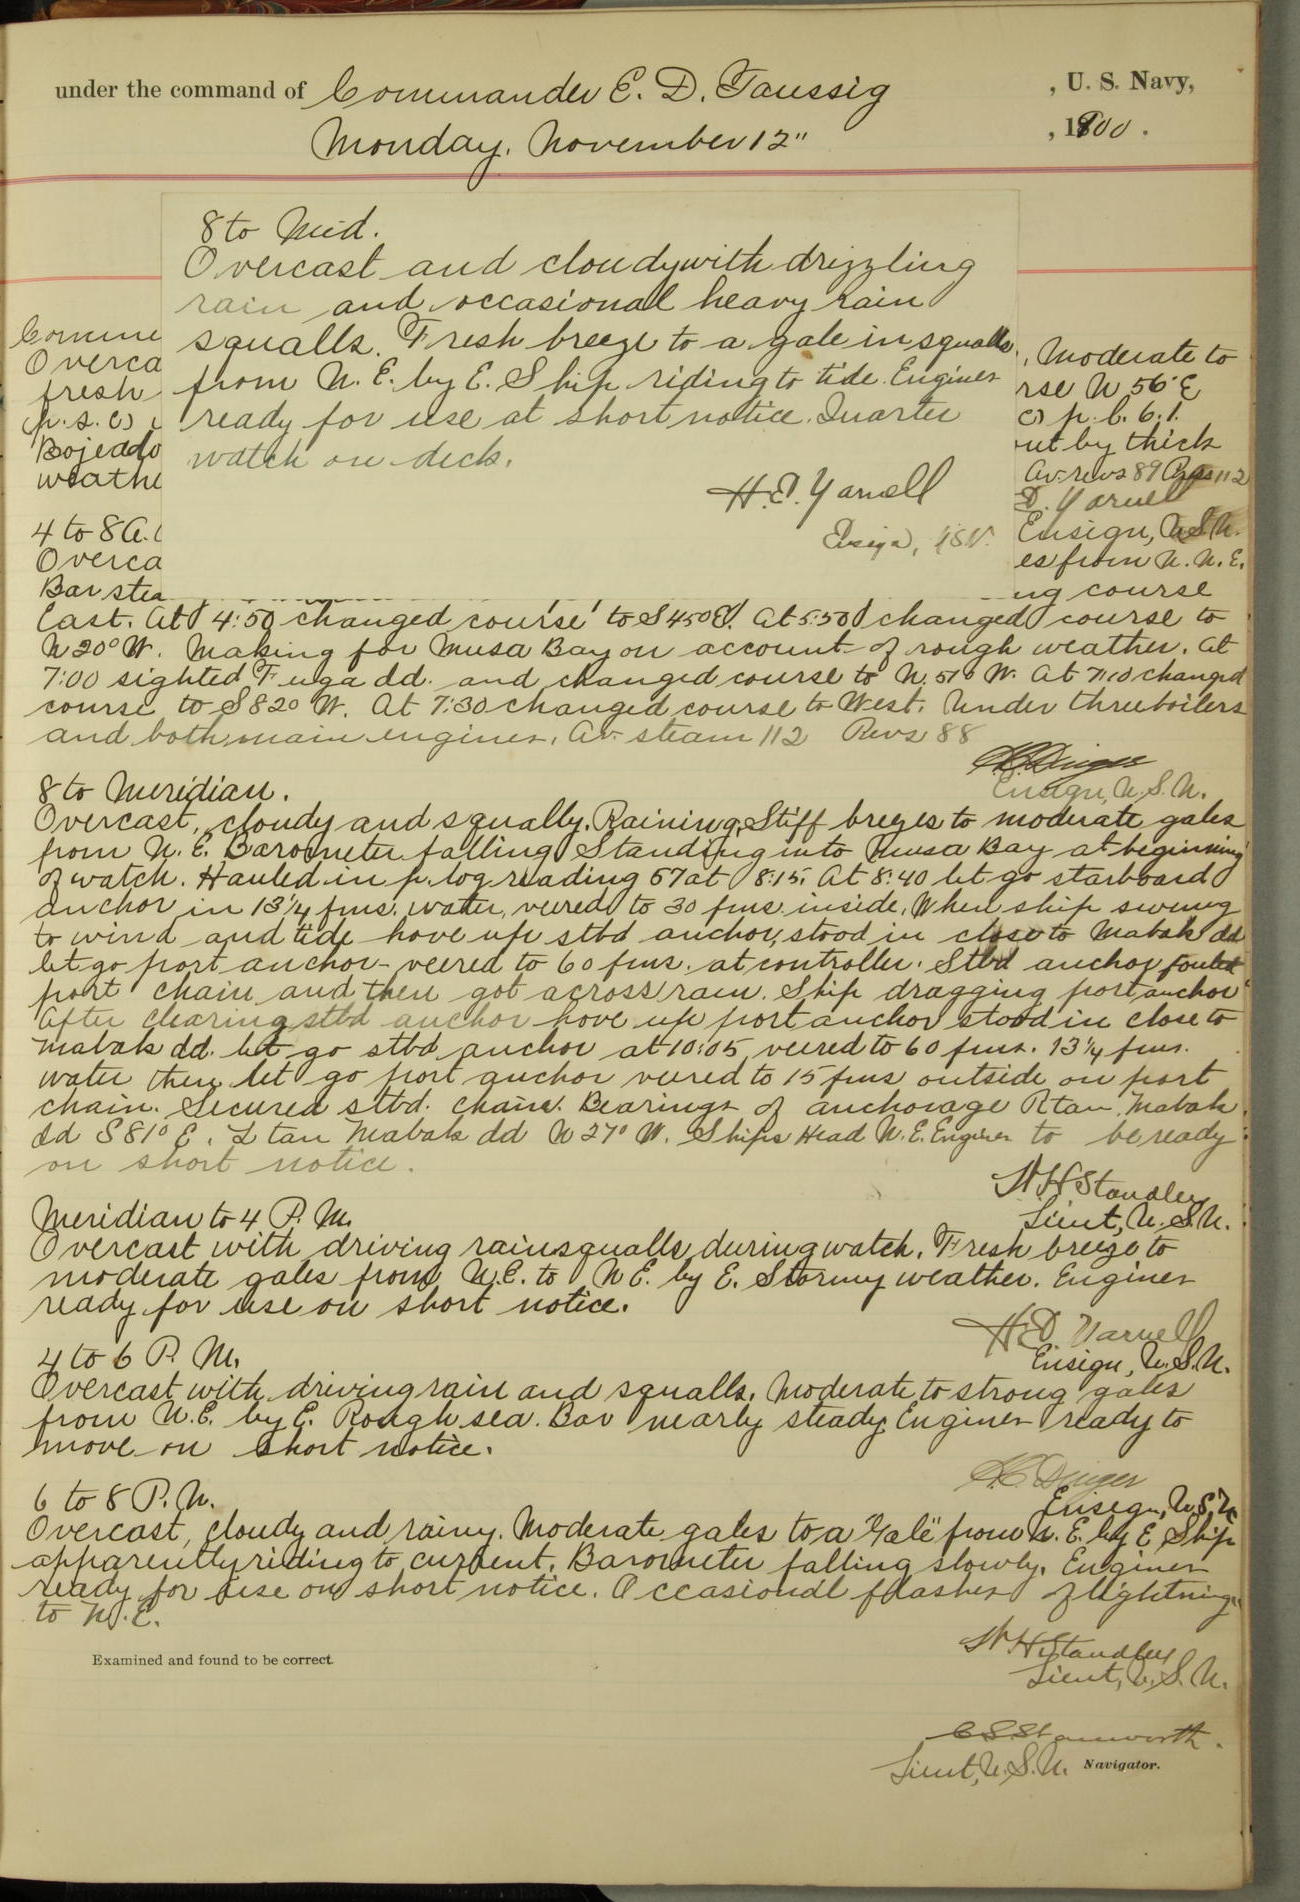 under the command of Commander E. D. Taussig, U. S. Navy,
Monday, November 12", 1900.
8 to Mid.
Overcast and cloudy with drizzling
rain and occasional heavy rain
squalls. Fresh breeze to a gale in squalls
from N. E. by E. Ship riding to tide. Engines
ready for use at short notice. Quarter
watch on deck.
H. E. Yarnell
Ensign, U.S.N.
Comme
Overca
fresh
(p. s. c)
Bojeado
weathe
, Moderate to
rse N 56° E
c) p. l. 6.1.
out by thick
Av. revs 89
D. Yarnell
Ensign, U.S.N.
4 to 8 A.
Overca es from N. N. E.
Bar stea ng course
East. At 4:50 changed course to S 45° E. At 5:50 changed course to
N 20° W. Making for Musa Bay on account of rough weather. At
7:00 sighted Fuga Id. and changed course to N. 57° W. At 7:10 changed
course to S 82° W. At 7:30 changed course to West. Under three boilers
and both main engines. Av. steam 112 Revs 88
Ensign, U.S.N.
8 to Meridian.
Overcast, cloudy and squally. Raining. Stiff breezes to moderate gales
from N. E. Barometer falling. Standing into Musa Bay at beginning
of watch. Hauled in p. log reading 57 at 8:15. At 8:40 let go starboard
anchor in 13 1/4 fms. water, veered to 30 fms. inside. When ship swung
to wind and tide hove up stbd anchor, stood in close to Mabak Id
let go port anchor - veered to 60 fms. at controller. Stbd anchor fouled
port chain and then got across ram. Ship dragging port anchor
After clearing stbd anchor hove up port anchor stood in close to
Mabak Id. let go stbd anchor at 10:05, veered to 60 fms. 13 1/4 fms.
water then let go port anchor veered to 15 fms outside on port
chain. Secured stbd. chain. Bearings of anchorage R tan. Mabak
Id S 81° E. L tan Mabak Id N 27° W. Ships Head N. E. Engines to be ready
on short notice.
W H Standley
Lieut, U.S.N.
Meridian to 4 P. M.
Overcast with driving rainsqualls during watch. Fresh breeze to
moderate gales from N. E. to N E. by E. Stormy weather. Engines
ready for use on short notice.
H. E. Yarnell
Ensign, U.S.N.
4 to 6 P. M.
Overcast with driving rain and squalls. Moderate to strong gales
from N. E. by E. Rough sea. Bar nearly steady. Engines ready to
move on short notice.
Dinger
Ensign, U.S.N.
6 to 8 P. M.
Overcast, cloudy and rainy. Moderate gales to a "Gale" from N. E. by E Ship
apparently riding to current. Barometer falling slowly. Engines
ready for use on short notice. Occasional flashes of lightning
to N. E.
W H Standley
Lieut, U.S.N.
Examined and found to be correct.
C S Stanworth.
Lieut, U.S.N. Navigator.